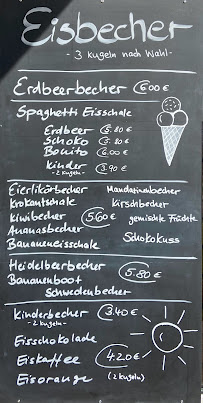 Eisbecher
- 3 Kugeln nach Wahl -
Erdbeerbecher 6.00 €
Spaghetti Eisschale
Erdbeer 5.80 €
Schoko 5.80 €
Bonito 6.00 €
Kinder 3.90 €
-2 Kugeln-
Eierlikörbecher Mandarinabecher
Krokantschale Kirschbecher
Kiwibecher 5.60 € gemischte Früchte
Ananasbecher Schokokuss
Bananeneisschale
Heidelbeerbecher 5.80 €
Bananenboot
Schwedenbecher
Kinderbecher 3.40 €
-2 Kugeln-
Eisschokolade
Eiskaffee 4.20 €
Eisorange (2 Kugeln)